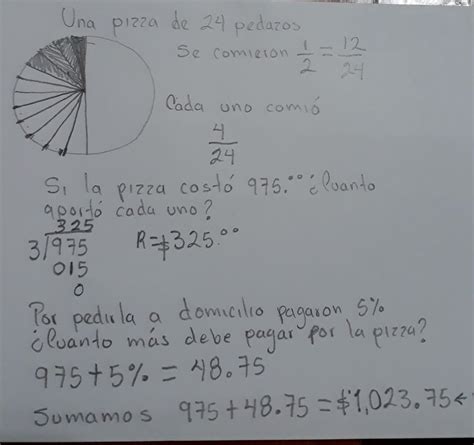 Una pizza de 24 pedazos
Se comieron 1/2 = 12/24
Cada uno comió
4/24
Si la pizza costó 975.⁰⁰ ¿Cuanto
aportó cada uno?
325
3/975
R=$325.⁰⁰
015
0
Por pedirla a domicilio pagaron 5%
¿Cuanto más debe pagar por la pizza?
975+5% = 48.75
Sumamos 975+48.75=$1,023.75←